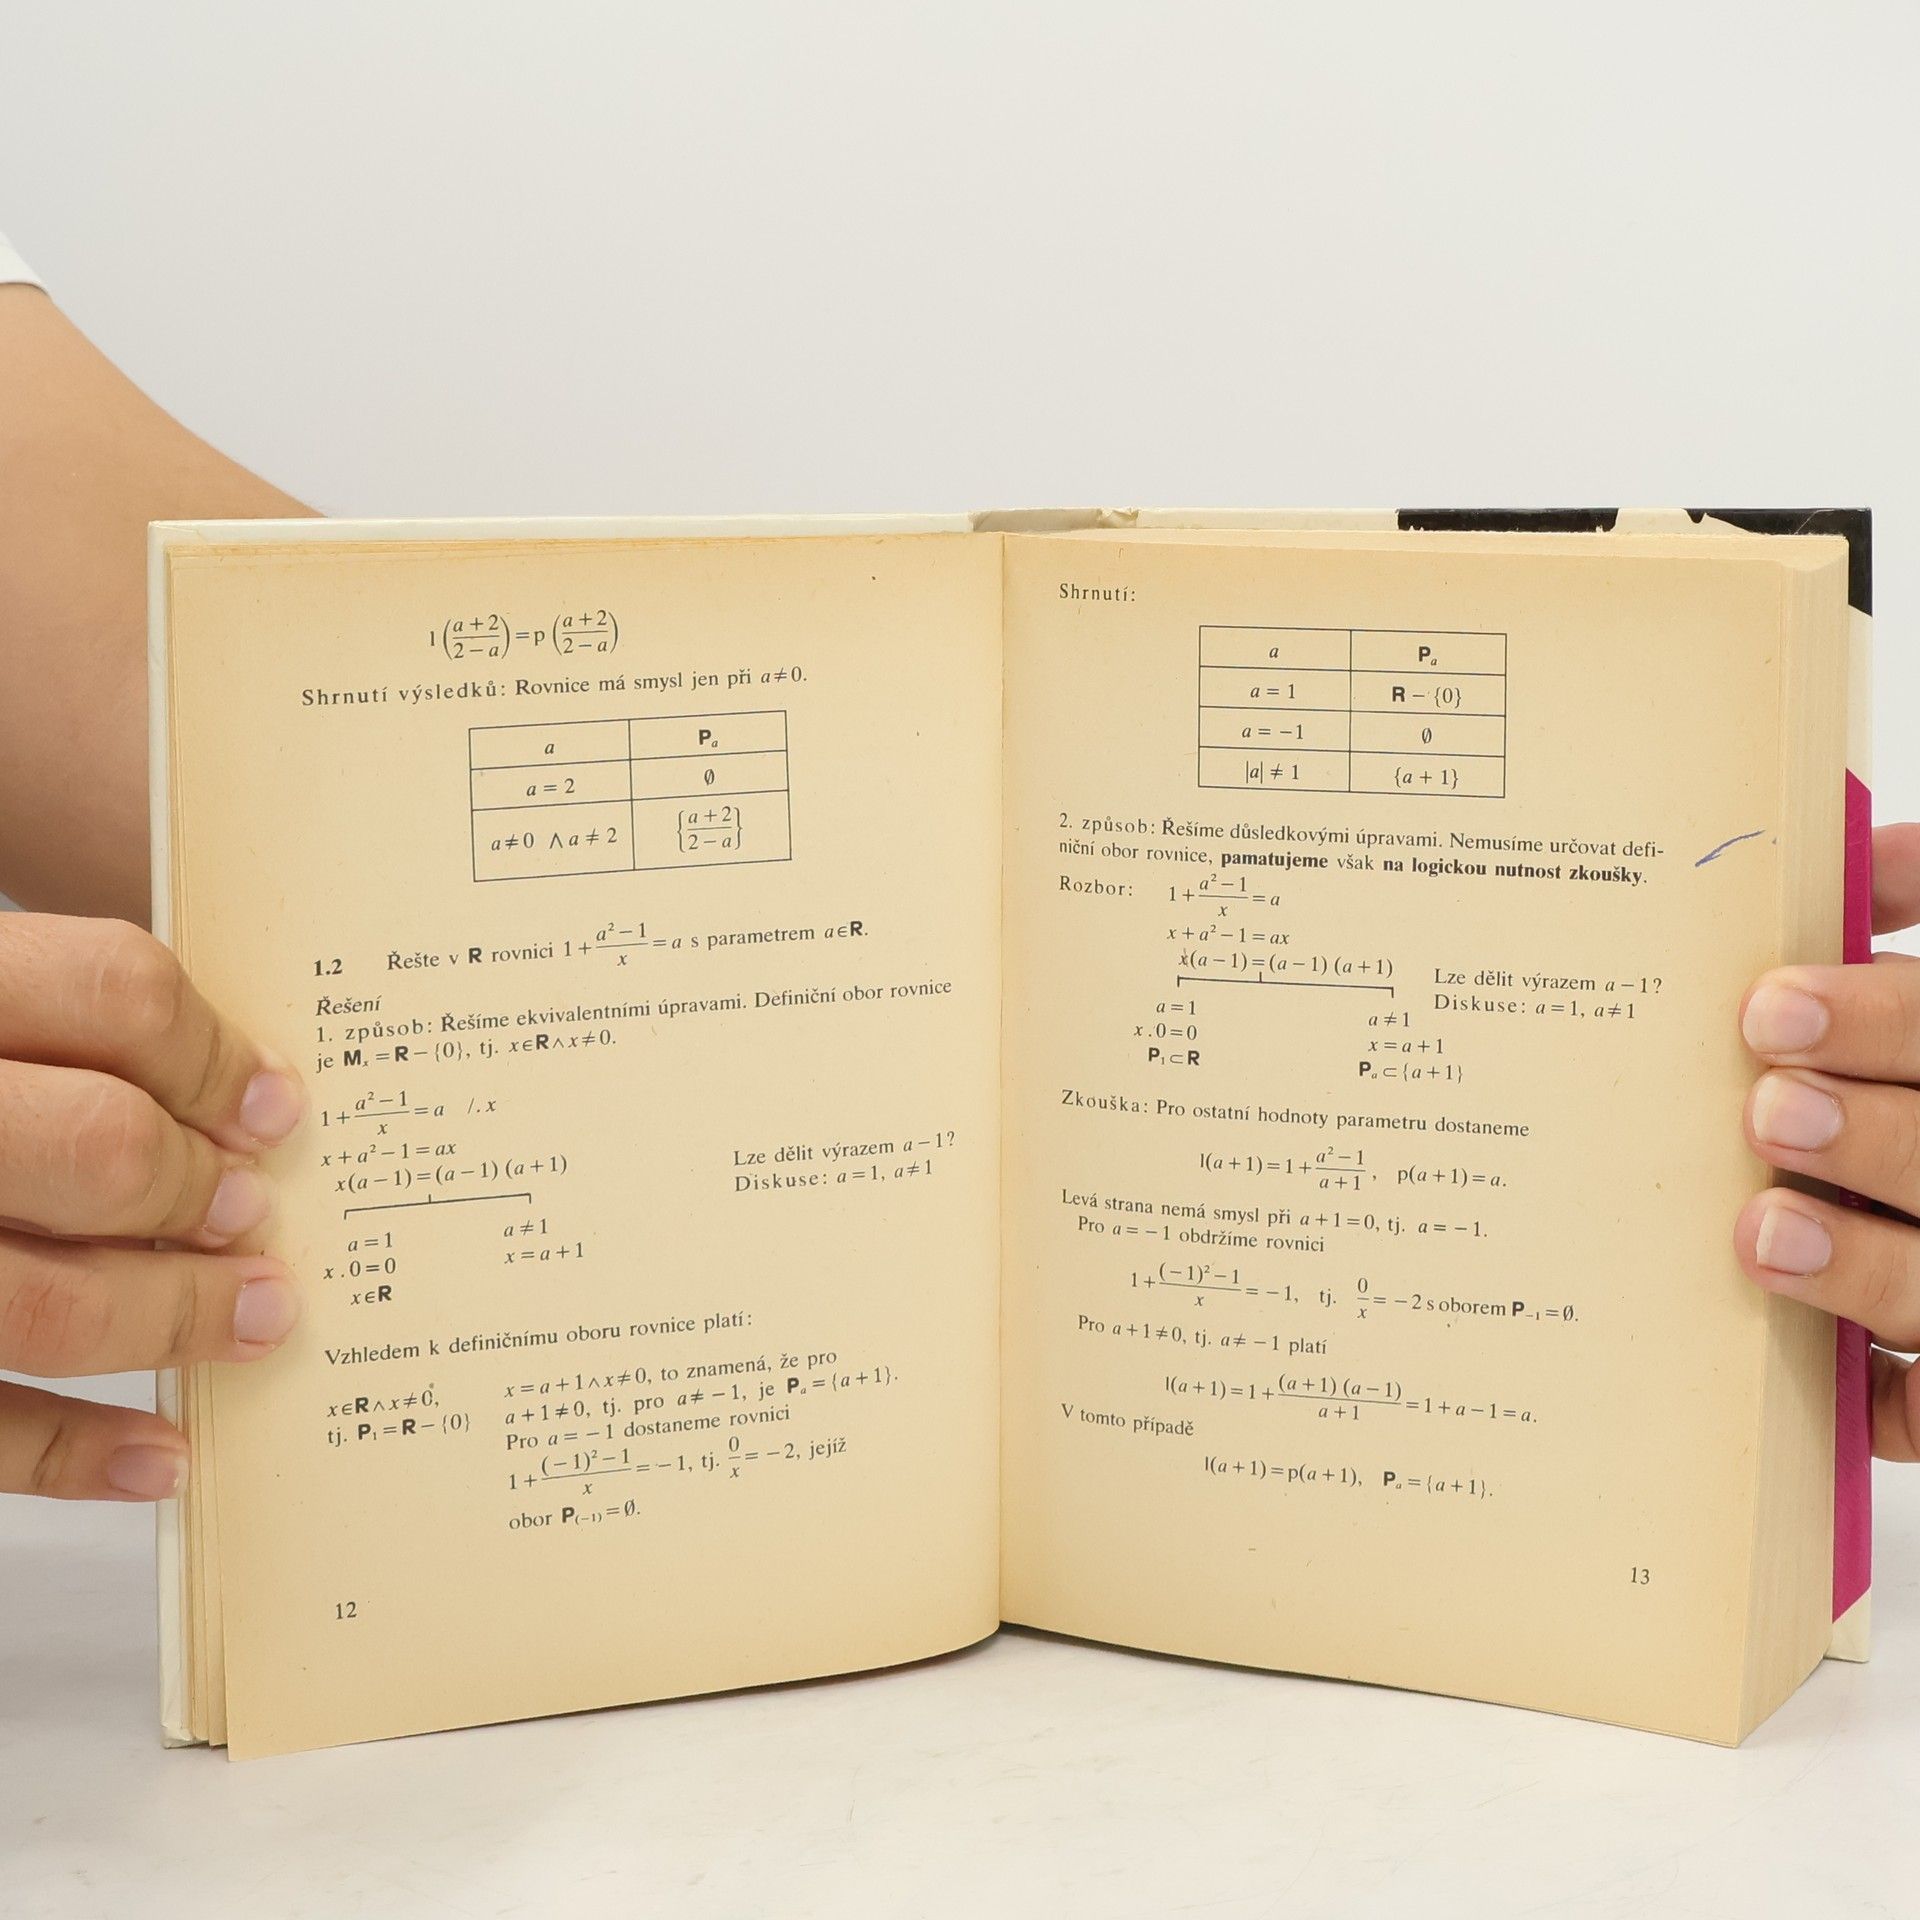 l((a+2)/(2−a)) = p((a+2)/(2−a))
Shrnutí výsledků: Rovnice má smysl jen při a≠0.
a | Pₐ
a = 2 | ∅
a≠0 ∧ a≠2 | {(a+2)/(2−a)}
1.2 Řešte v R rovnici 1+(a²−1)/x=a s parametrem a∈R.
Řešení
1. způsob: Řešíme ekvivalentními úpravami. Definiční obor rovnice
je Mₓ=R−{0}, tj. x∈R∧x≠0.
1+(a²−1)/x=a /.x
x+a²−1=ax
x(a−1)=(a−1)(a+1) Lze dělit výrazem a−1?
Diskuse: a=1, a≠1
a=1 a≠1
x.0=0 x=a+1
x∈R
Vzhledem k definičnímu oboru rovnice platí:
x∈R∧x≠0, x=a+1∧x≠0, to znamená, že pro
tj. P₁=R−{0} a+1≠0, tj. pro a≠−1, je Pₐ={a+1}.
Pro a=−1 dostaneme rovnici
1+((−1)²−1)/x=−1, tj. 0/x=−2, jejíž
obor P₍₋₁₎=∅.
12
Shrnutí:
a | Pₐ
a = 1 | R − {0}
a = −1 | ∅
|a| ≠ 1 | {a + 1}
2. způsob: Řešíme důsledkovými úpravami. Nemusíme určovat defi-
niční obor rovnice, pamatujeme však na logickou nutnost zkoušky.
Rozbor: 1+(a²−1)/x=a
x+a²−1=ax
x(a−1)=(a−1)(a+1) Lze dělit výrazem a−1?
Diskuse: a=1, a≠1
a=1 a≠1
x.0=0 x=a+1
P₁⊂R Pₐ⊂{a+1}
Zkouška: Pro ostatní hodnoty parametru dostaneme
l(a+1)=1+(a²−1)/(a+1), p(a+1)=a.
Levá strana nemá smysl při a+1=0, tj. a=−1.
Pro a=−1 obdržíme rovnici
1+((−1)²−1)/x=−1, tj. 0/x=−2 s oborem P₋₁=∅.
Pro a+1≠0, tj. a≠−1 platí
l(a+1)=1+((a+1)(a−1))/(a+1)=1+a−1=a.
V tomto případě
l(a+1)=p(a+1), Pₐ={a+1}.
13